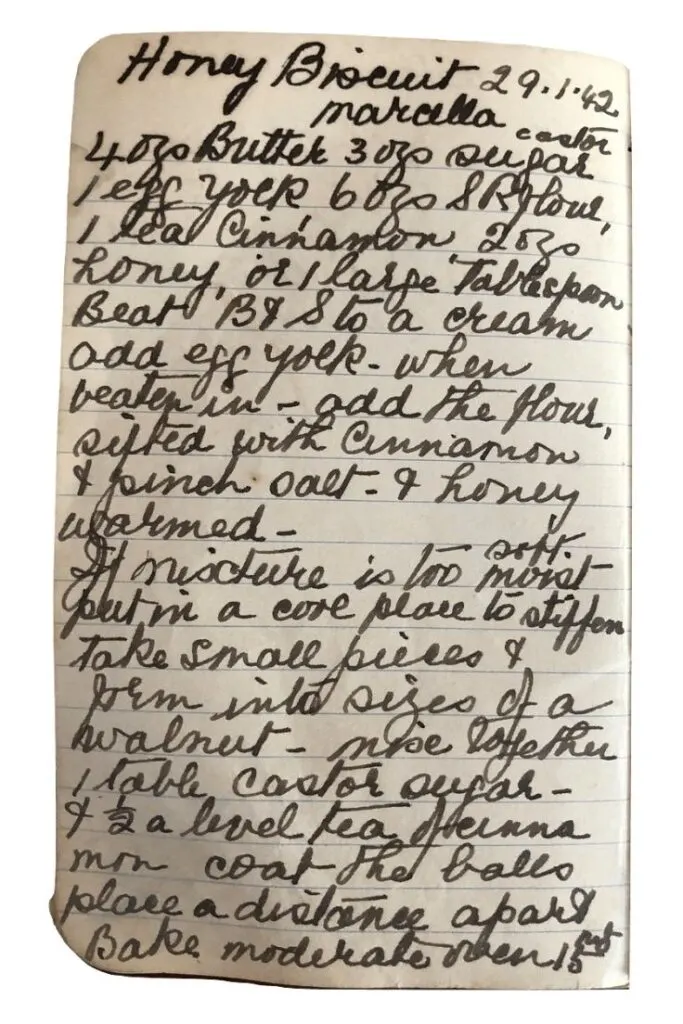 Honey Biscuit 29.1.42
marcella
castor
4 ozs Butter 3 ozs sugar
1 egg yolk 6 ozs S R flour,
1 tea Cinnamon, 2 ozs
honey, or 1 large Tablespoon
Beat B & S to a cream
add egg yolk - when
beaten in - add the flour,
sifted with Cinnamon
& pinch salt - & honey
warmed -
soft.
If mixture is too moist
put in a cool place to stiffen
take small pieces &
form into sizes of a
walnut - mix together
1 table castor sugar -
& ½ a level tea of cinna
mon coat the balls
place a distance apart
Bake moderate oven 15